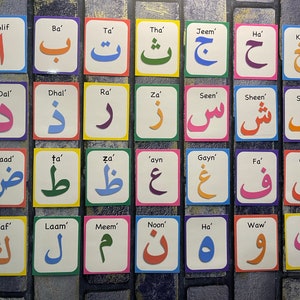 lif Ba' Ta' Tha' Jeem' Ha' K
ا ب ت ث ج ح خ
Dal' Dhal' Ra' Za' Seen' Sheen' S
د ذ ر ز س ش
aad' ṭa' ẓa' 'ayn Gayn' Fa'
ض ط ظ ع غ ف
af' Laam' Meem' Noon' Ha' Waw'
ك ل م ن ه و